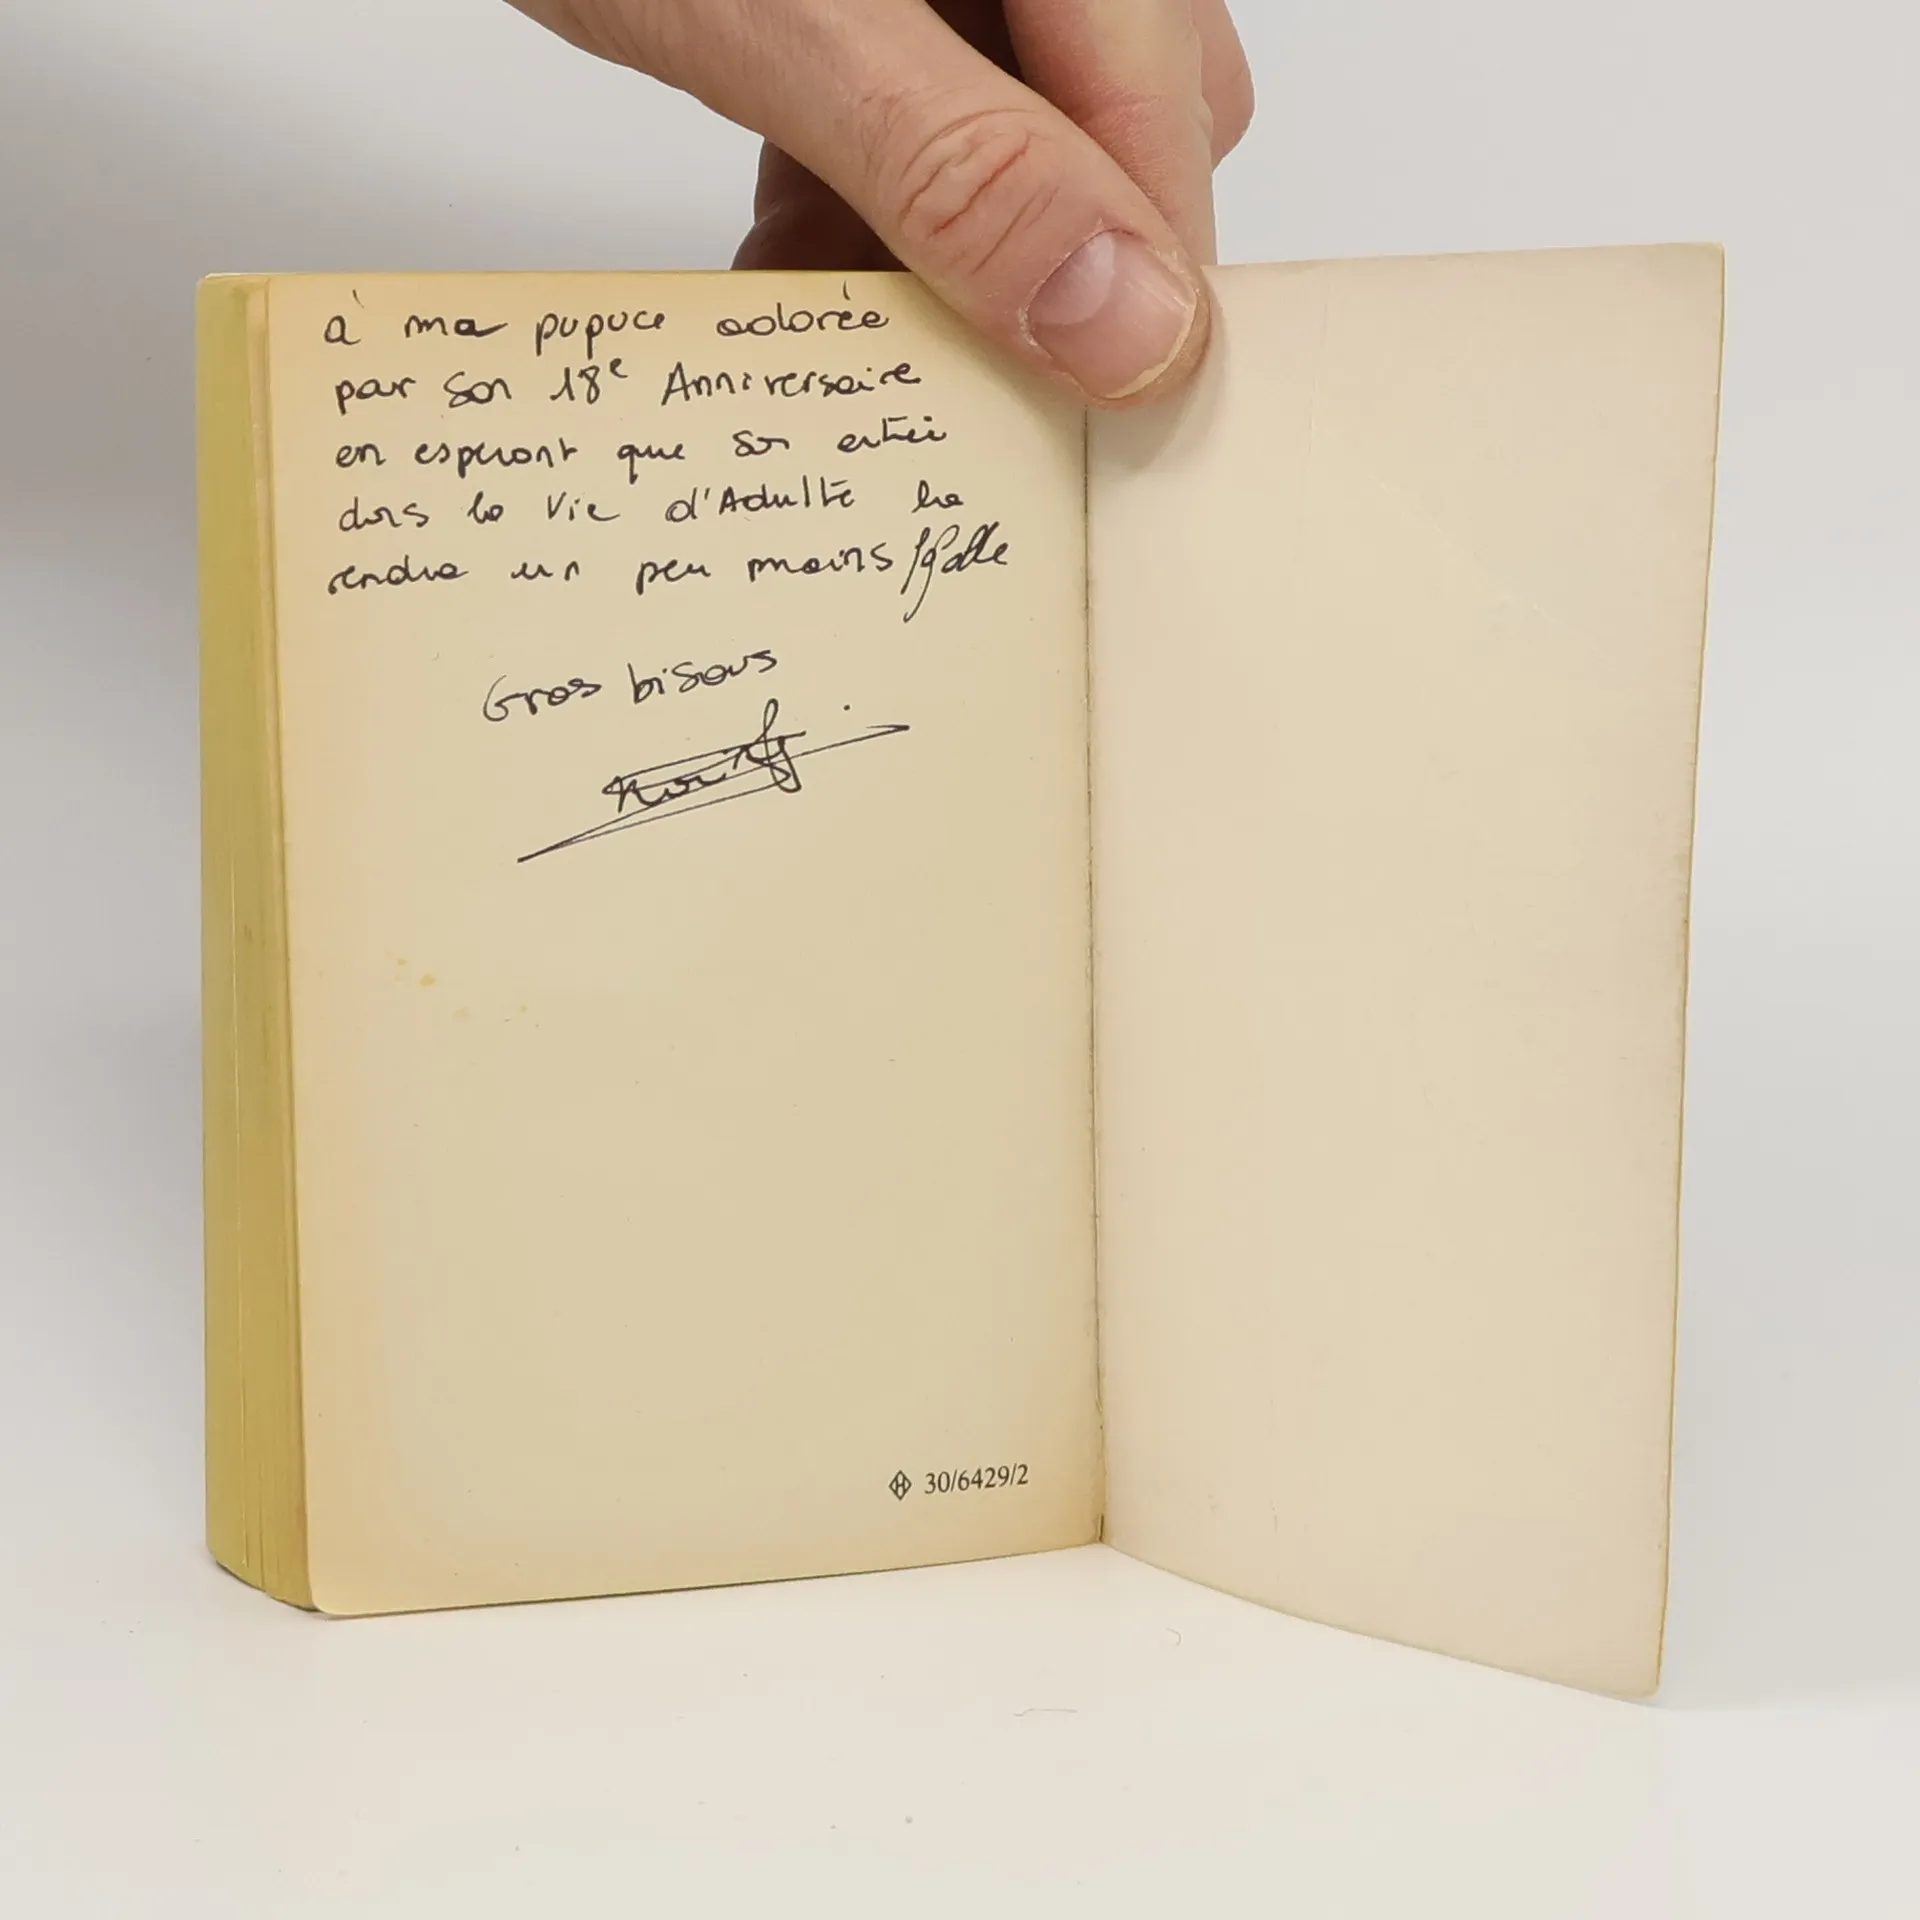 à ma pupuce adorée
par son 18e Anniversaire
en esperant que son entrée
dans la Vie d'Adulte la
rendra un peu moins
Gros bisous
30/6429/2